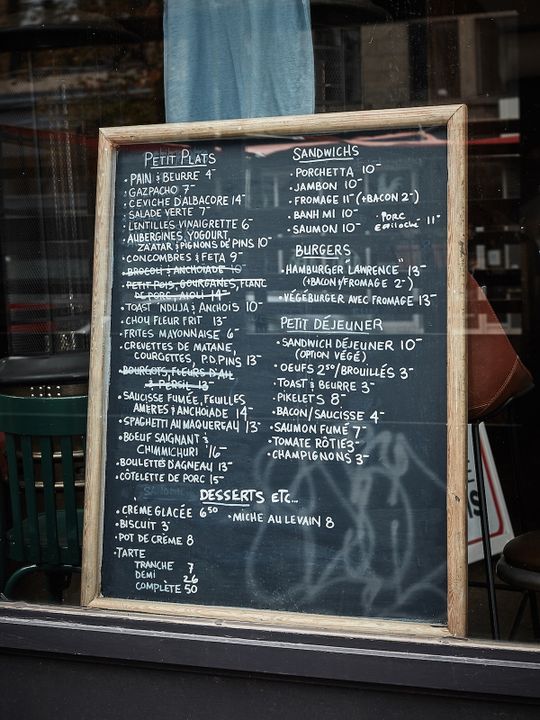 PETIT PLATS
• PAIN & BEURRE 4-
• GAZPACHO 7-
• CEVICHE D'ALBACORE 14-
• SALADE VERTE 7-
• LENTILLES VINAIGRETTE 6-
• AUBERGINES, YOGOURT,
ZA'ATAR & PIGNONS DE PINS 10-
• CONCOMBRES & FETA 9-
• BROCOLI & ANCHOIADE 10-
• PETIT POIS, GOURGANES, FLANC
DE PORC, AIOLI 14-
• TOAST 'NDUJA & ANCHOIS 10-
• CHOU FLEUR FRIT 13-
• FRITES MAYONNAISE 6-
• CREVETTES DE MATANE,
COURGETTES, P.D.PINS 13-
• BOURGOTS, FLEURS D'AIL
& PERSIL 13-
• SAUCISSE FUMÉE, FEUILLES
AMÈRES & ANCHOIADE 14-
• SPAGHETTI AU MAQUEREAU 13-
• BOEUF SAIGNANT &
CHIMMICHURI 16-
• BOULETTES D'AGNEAU 13-
• CÔTELETTE DE PORC 15-
SANDWICHS
• PORCHETTA 10-
• JAMBON 10-
• FROMAGE 11- (+BACON 2-)
• BANH MI 10-
• SAUMON 10-
• PORC
EFFILOCHÉ 11-
BURGERS
• HAMBURGER "LAWRENCE" 13-
(+BACON & FROMAGE 2-)
• VÉGÉBURGER AVEC FROMAGE 13-
PETIT DÉJEUNER
• SANDWICH DÉJEUNER 10-
(OPTION VÉGÉ)
• OEUFS 2.50/BROUILLÉS 3-
• TOAST & BEURRE 3-
• PIKELETS 8-
• BACON/SAUCISSE 4-
• SAUMON FUMÉ 7-
• TOMATE RÔTIE 3-
• CHAMPIGNONS 3-
DESSERTS ETC...
• CRÈME GLACÉE 6.50
• BISCUIT 3-
• POT DE CRÈME 8
• TARTE
TRANCHE 7
DEMI 26
COMPLÈTE 50
• MICHE AU LEVAIN 8